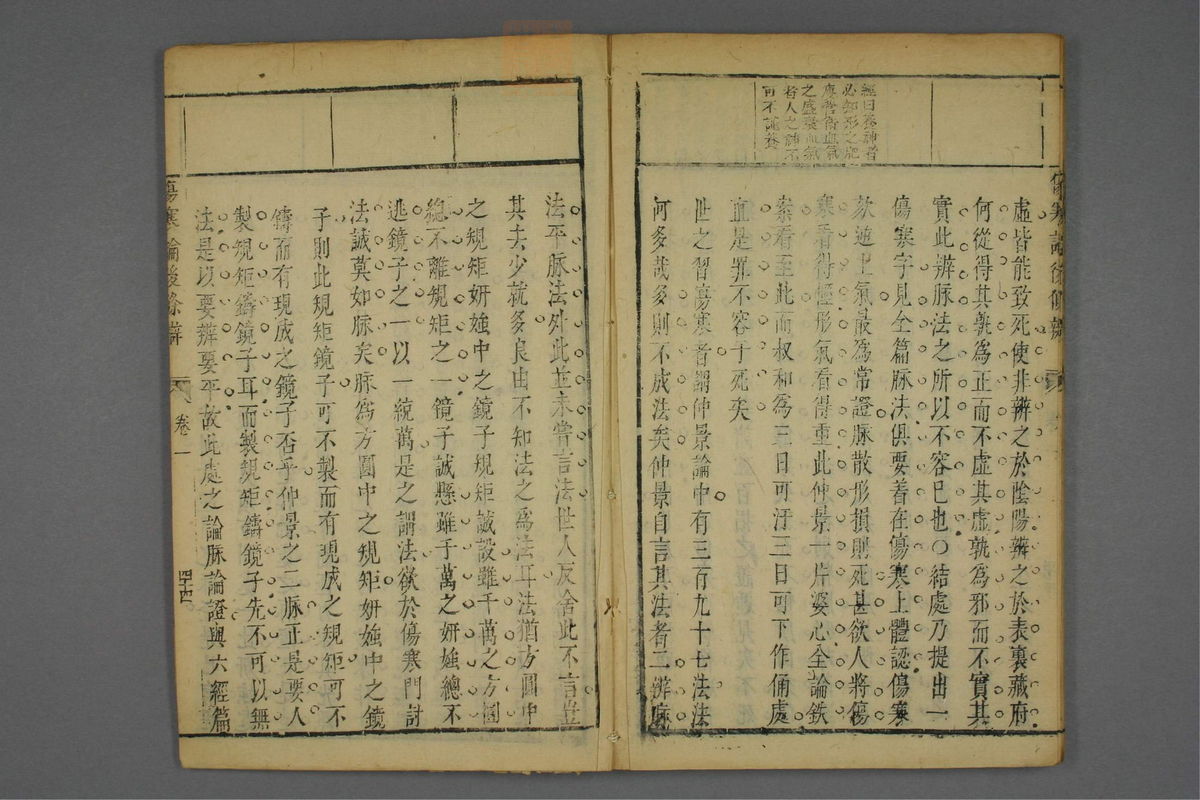 經曰養神者
必知形之肥
瘦營衛血氣
之盛衰血氣
者人之神不
可不謹養
虛皆能致死使非辨之於陰陽辨之於表裏藏府
何從得其孰為正而不虛其虛孰為邪而不實其
實此辨脉法之所以不容已也○結處乃提出一
傷寒字見全篇脉法俱要着在傷寒上體認傷寒
欬逆上氣最為常證脉散形損則死甚欲人將傷
寒看得極形氣看得重此仲景一片婆心全論鉄
案看至此而叔和為三日可汗三日可下作俑處
血是罪不容于死矣
世之習傷寒者謂仲景論中有三百九十七法法
何多哉多則不成法矣仲景自言其法者二辨脉
法平脉法外此並未嘗言法世人反舍此不言並
其去少就多良由不知法之為法耳法猶方圓中
之規矩妍媸中之鏡子規矩誠設雖千萬之方圓
總不離規矩之一鏡子誠懸雖千萬之妍媸總不
逃鏡子之一以一統萬是之謂法欲於傷寒門討
法誠莫如脉矣脉為方圓中之規矩妍媸中之鏡
子則此規矩鏡子可不製而有現成之規矩可不
鑄而有現成之鏡子否乎仲景之二脉正是要人
製規矩鑄鏡子耳而製規矩鑄鏡子先不可以無
法是以要辨要平故此處之論脉論證與六經篇
傷寒論後條辨
卷一
四十四